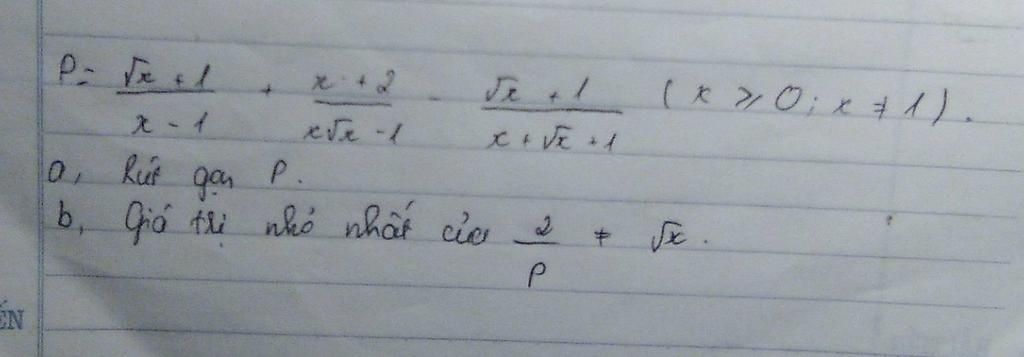 P = \frac{\sqrt{x} + 1}{x - 1} + \frac{x + 2}{x\sqrt{x} - 1} - \frac{\sqrt{x} + 1}{x + \sqrt{x} + 1} (x ⩾ 0; x ≠ 1).
a, Rút gọn P.
b, Giá trị nhỏ nhất của \frac{2}{P} + \sqrt{x}.
ÉN